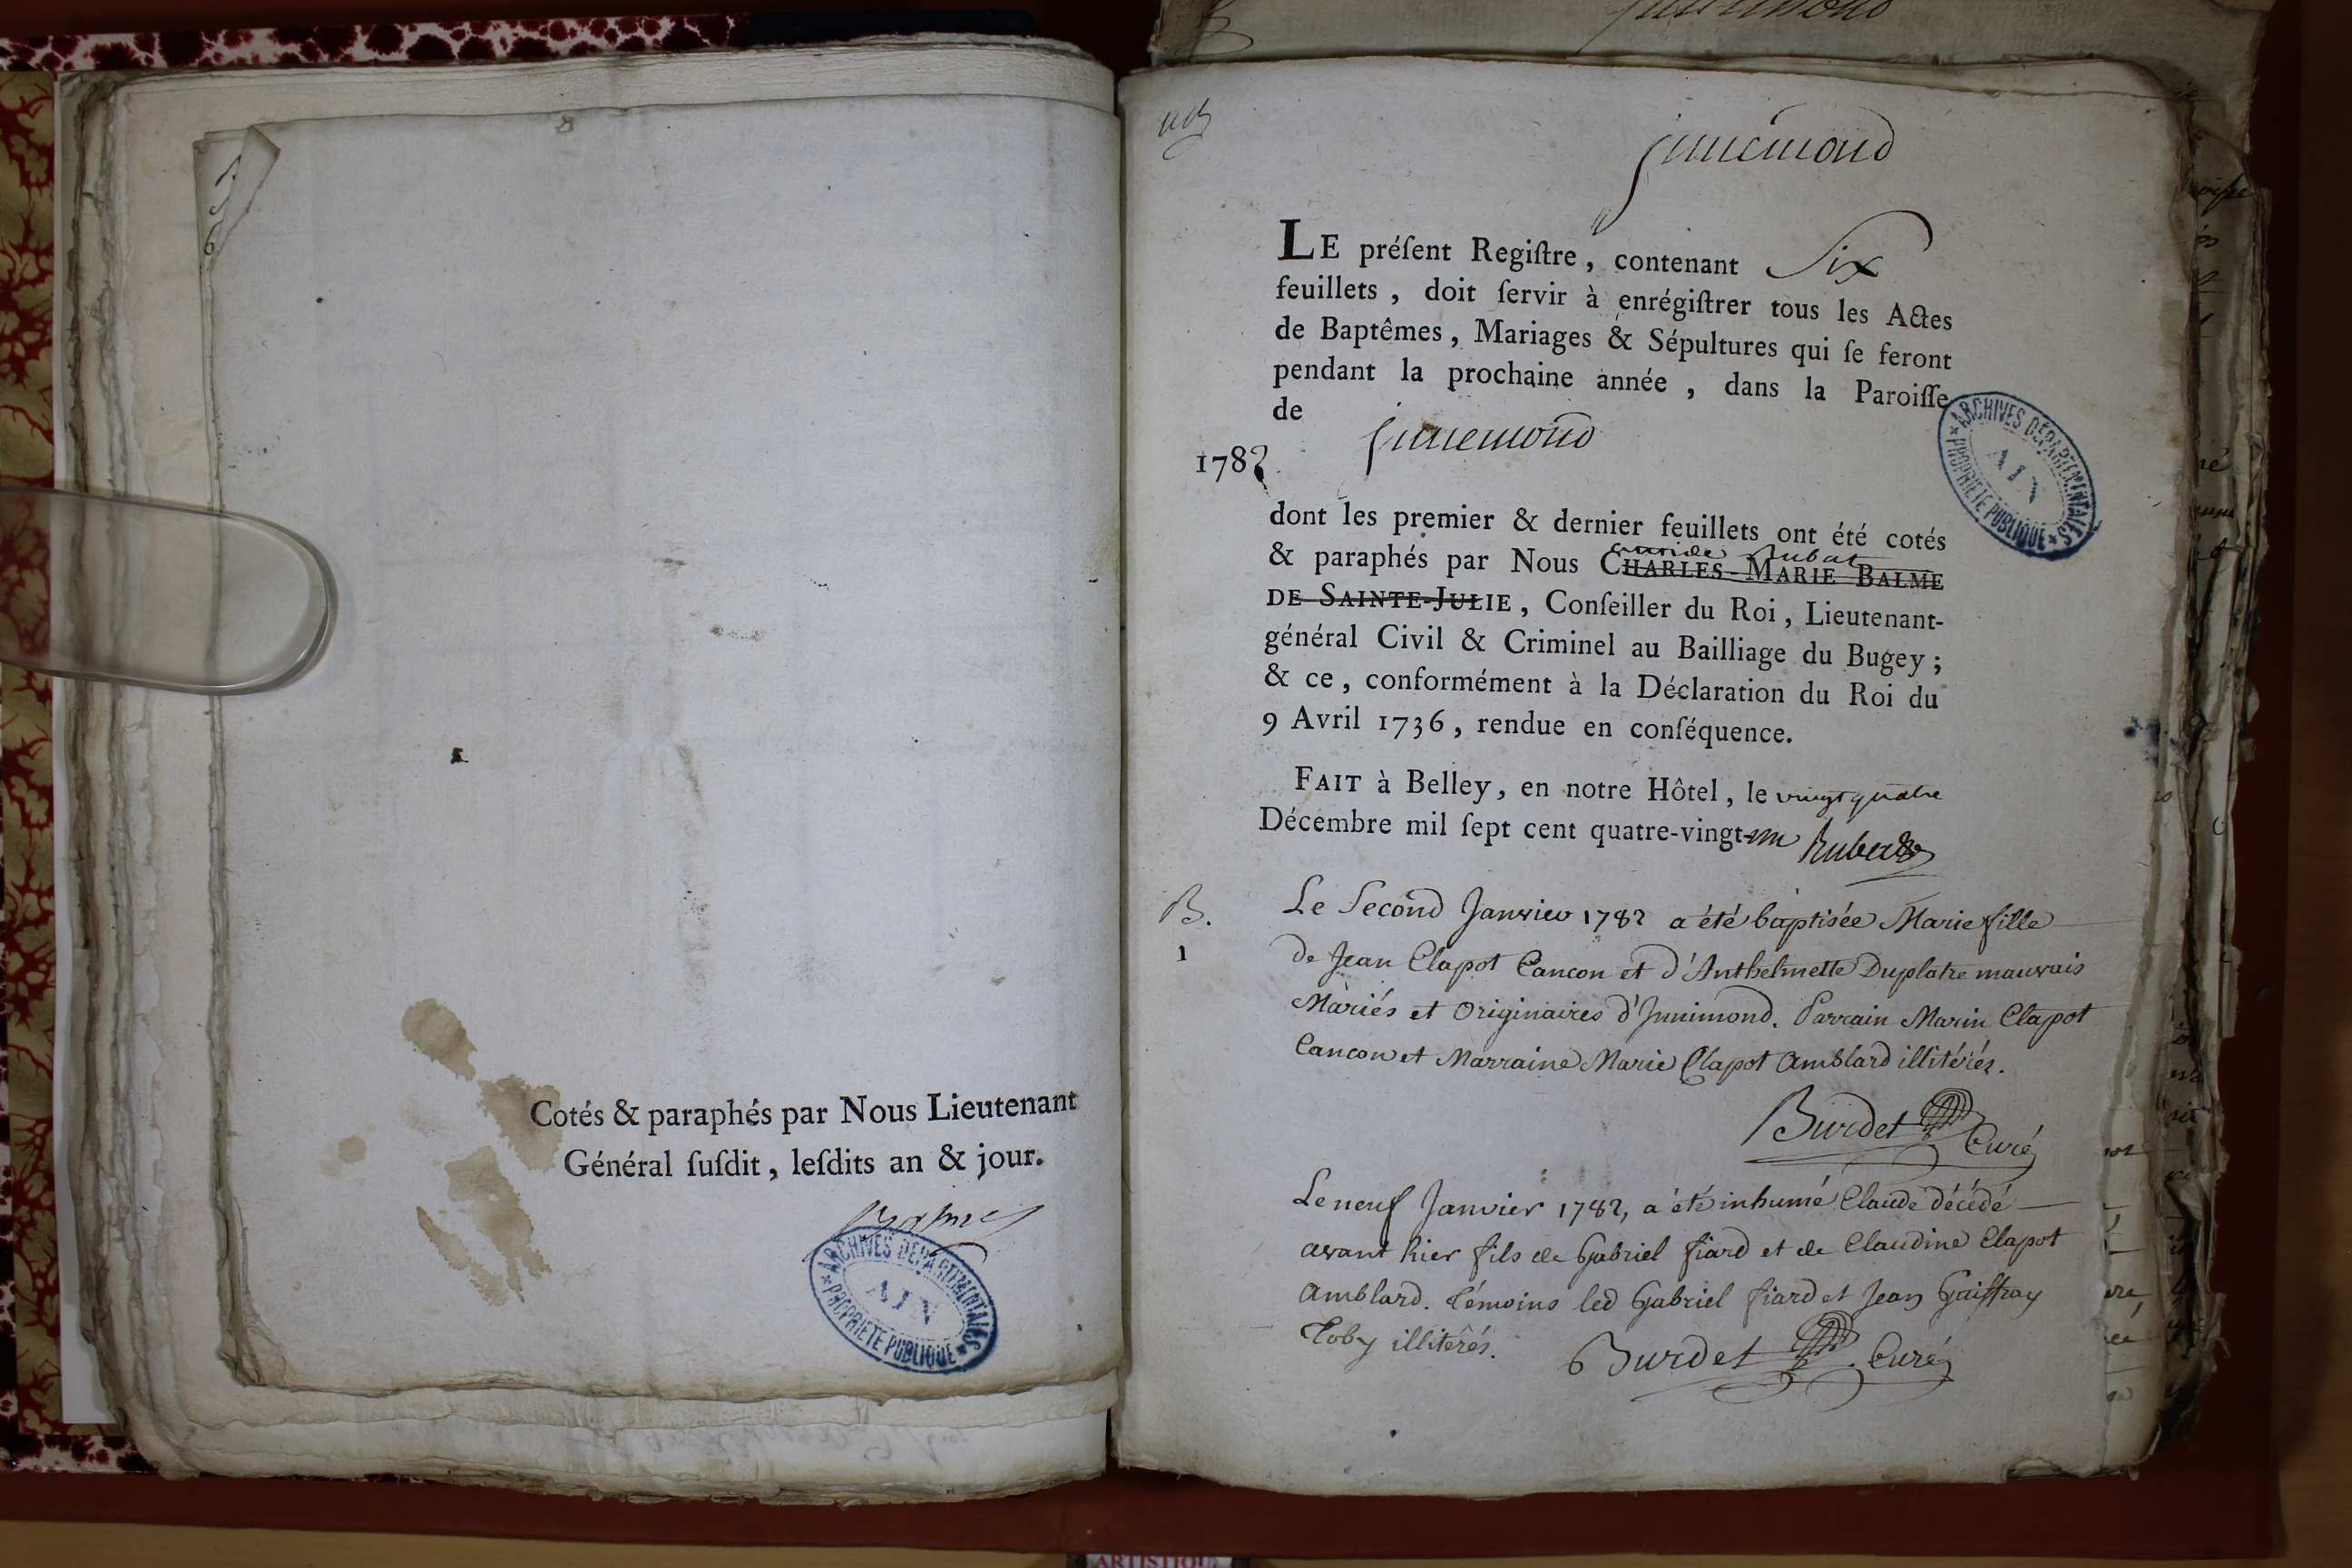 6
Cotés & paraphés par Nous Lieutenant
Général ſuſdit, leſdits an & jour.
ARCHIVES DÉPARTEMENTALES
AIN
PROPRIÉTÉ PUBLIQUE
Innemond
LE préſent Regiſtre, contenant Six
feuillets, doit ſervir à enrégiſtrer tous les Actes
de Baptêmes, Mariages & Sépultures qui ſe feront
pendant la prochaine année, dans la Paroiſſe
de
Innemond
1782
ARCHIVES DÉPARTEMENTALES
AIN
PROPRIÉTÉ PUBLIQUE
dont les premier & dernier feuillets ont été cotés
Rubat
& paraphés par Nous CHARLES-MARIE BALME
DE SAINTE-JULIE, Conſeiller du Roi, Lieutenant-
général Civil & Criminel au Bailliage du Bugey;
& ce, conformément à la Déclaration du Roi du
9 Avril 1736, rendue en conſéquence.
FAIT à Belley, en notre Hôtel, le vingt quatre
Décembre mil ſept cent quatre-vingt-un Rubat
B. Le Second Janvier 1782 a été baptisée Marie fille
1 de Jean Clapot Cancon et d'Anthelmette Duplatre mauvais
Mariés et Originaires d'Innimond. Parrain Marin Clapot
Cancon et Marraine Marie Clapot Amblard illitérés.
Burdet Curé
Le neuf Janvier 1782, a été inhumé Claude décédé
avant hier fils de Gabriel fiard et de Claudine Clapot
Amblard. Témoins led Gabriel fiard et Jean Gaiffray
Toby illitérés. Burdet Curé
ARTISTIQUE